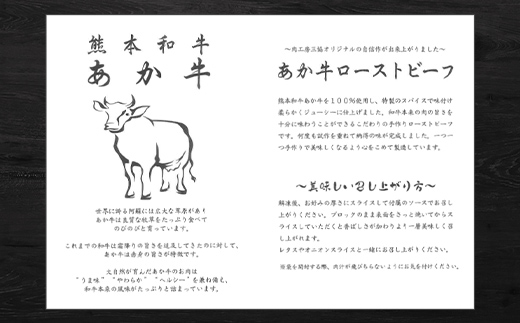 熊本和牛
あか牛
世界に誇る阿蘇には広大な草原があり
あか牛は良質な牧草をたっぷり食べて
のびのびと育っています。
これまでの和牛は霜降りの旨さを追及してきたのに対して、
あか牛は赤身の旨さが特徴です。
大自然が育んだあか牛のお肉は
“うま味” “やわらか” “ヘルシー”を兼ね備え、
和牛本来の風味がたっぷりと詰まっています。
〜肉工房三協オリジナルの自信作が出来上がりました〜
あか牛ローストビーフ
熊本和牛あか牛を１００％使用し、特製のスパイスで味付け
柔らかくジューシーに仕上げました。和牛本来の肉の旨さを
十分に味わうことができるこだわりの手作りローストビーフ
です。何度も試作を重ねて納得の味が完成しました。一つ一
つ手作りで美味しくなるようを心をこめて製造しています。
〜美味しい召し上がり方〜
解凍後、お好みの厚さにスライスして付属のソースでお召し
上がりください。ブロックのまま表面をさっと焼いてからス
ライスしていただくと香ばしさが加わりより一層美味しく召
し上がれます。
レタスやオニオンスライスと一緒にお召し上がりください。
※袋を開封する際、肉汁が飛びちらないようにお気を付けください。